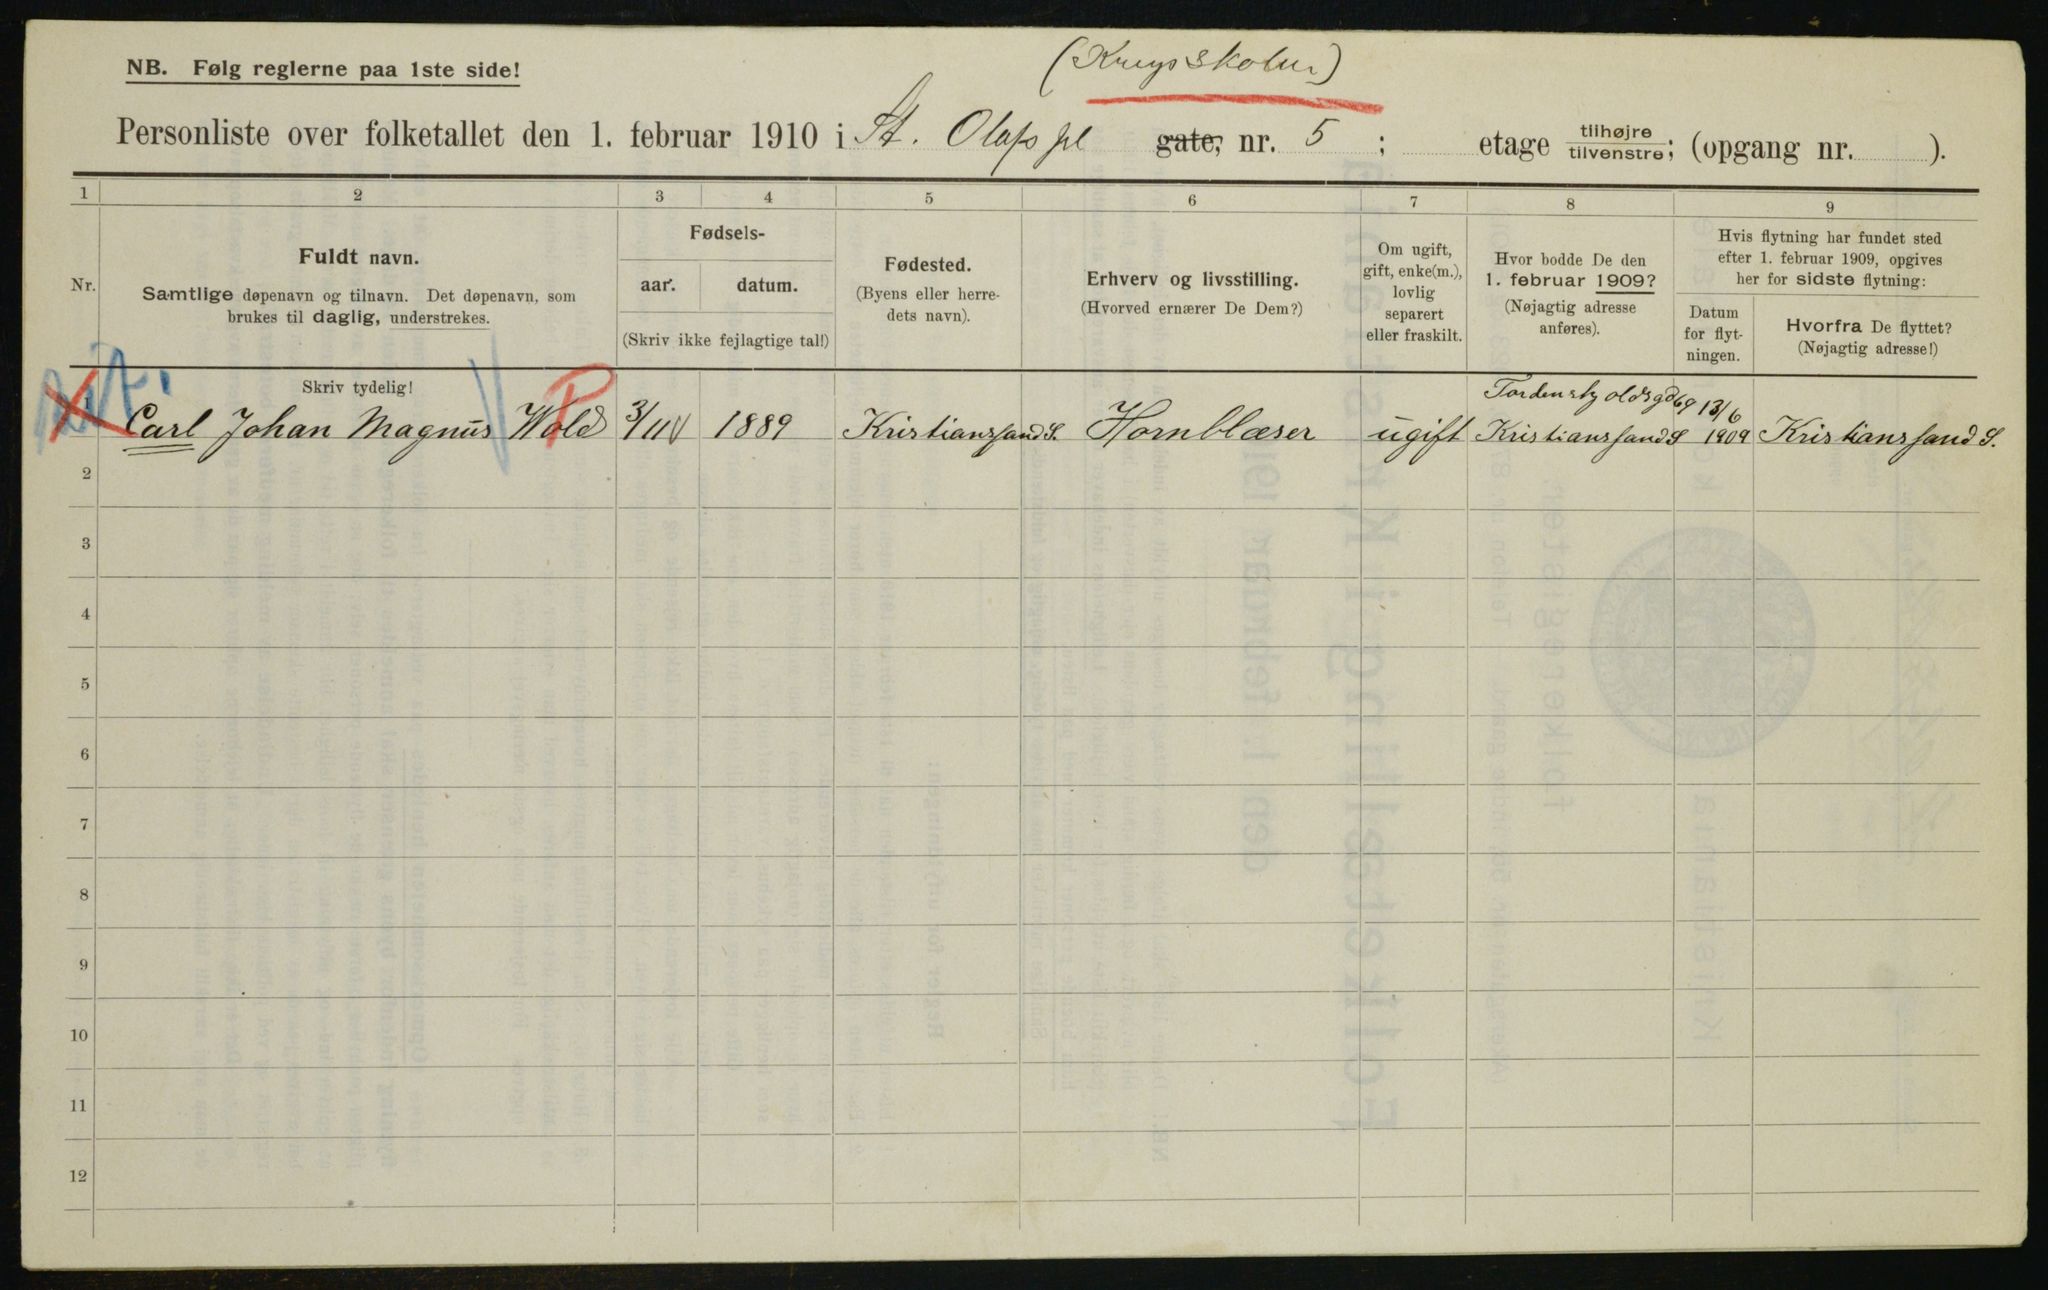 (Krigsskolen)
NB. Følg reglerne paa 1ste side!
Personliste over folketallet den 1. februar 1910 i St. Olafs pl gate, nr. 5 ; etage tilhøjre tilvenstre; (opgang nr. ).
1 2 3 4 5 6 7 8 9
Nr.
Fuldt navn.
Samtlige døpenavn og tilnavn. Det døpenavn, som
brukes til daglig, understrekes.
Skriv tydelig!
Fødsels-
aar. datum.
(Skriv ikke fejlagtige tal!)
Fødested.
(Byens eller herre-
dets navn).
Erhverv og livsstilling.
(Hvorved ernærer De Dem?)
Om ugift,
gift, enke(m.),
lovlig
separert
eller fraskilt.
Hvor bodde De den
1. februar 1909?
(Nøjagtig adresse
anføres).
Hvis flytning har fundet sted
efter 1. februar 1909, opgives
her for sidste flytning:
Datum
for flyt-
ningen.
Hvorfra De flyttet?
(Nøjagtig adresse!)
Tordenskjoldsgd 69 13/6
1 Carl Johan Magnus Wold 3/11 1889 Kristianssand S. Hornblæser ugift Kristianssand S 1909 Kristianssand S.
2
3
4
5
6
7
8
9
10
11
12